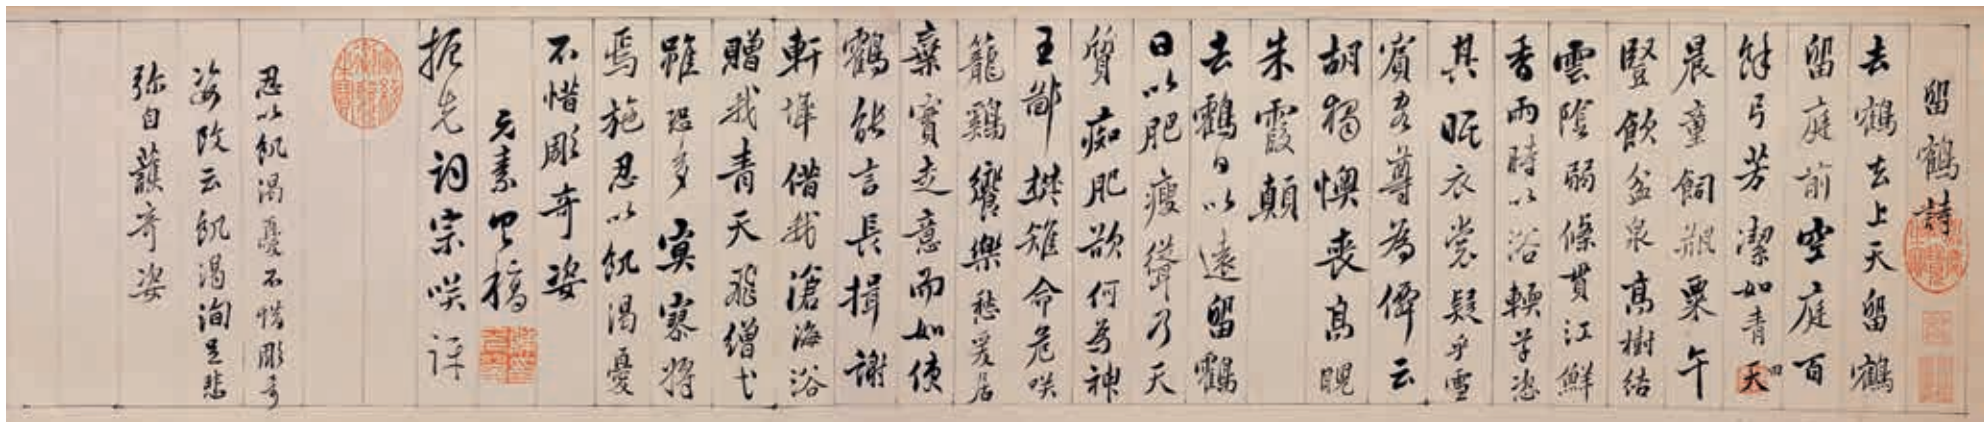 留鶴詩
去鶴去上天留鶴
留庭前空庭百
餘弓芳潔如青天
晨童飼瓶粟午
豎飲盆泉高樹結
雲陰弱條貫江鮮
香雨時以浴軟草恣
其眠衣裳疑乎雪
賓客尊為僊云
胡獨懊喪高睨
朱霞顛
去鶴日以遠留鶴
日以肥瘦聳乃天
質痴肥欲何為神
王鄙樊雉命危咲
籠鷄饗樂愁爰居
棄實走意而如使
鶴能言長揖謝
軒墀借我滄海浴
贈我青天飛矰弋
雖恐多寞寥將
焉施忍以飢渴憂
不惜彫奇姿
元素 稿
扼先詞宗咲評
忍以飢渴憂不惜彫奇
姿改云飢渴洵足悲
弥自護奇姿